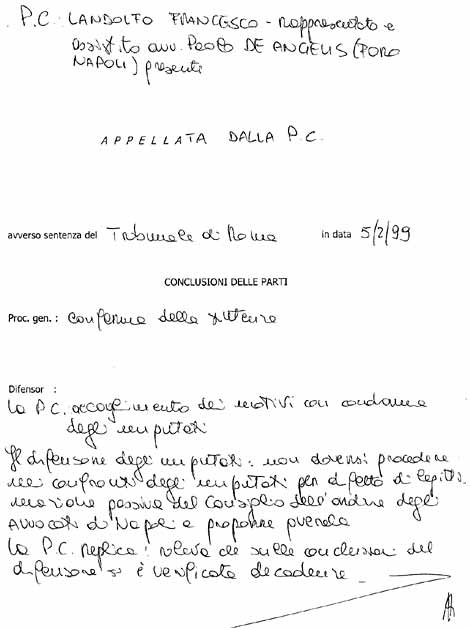 P.C. LANDOLFO FRANCESCO - rappresentato e
assistito avv. Paolo DE ANGELIS (FORO
NAPOLI) presente
APPELLATA DALLA P.C.
avverso sentenza del Tribunale di Roma in data 5/2/99
CONCLUSIONI DELLE PARTI
Proc. gen. : conferma della sentenza
Difensor :
la P.C. accoglimento dei motivi con condanna
degli imputati
Il difensore degli imputati: non doversi procedere
nei confronti degli imputati per difetto di legitti
mazione passiva del Consiglio dell'ordine degli
Avvocati di Napoli e propone querela
la P.C. replica: rileva che sulle conclusioni del
difensore si è verificata decadenza